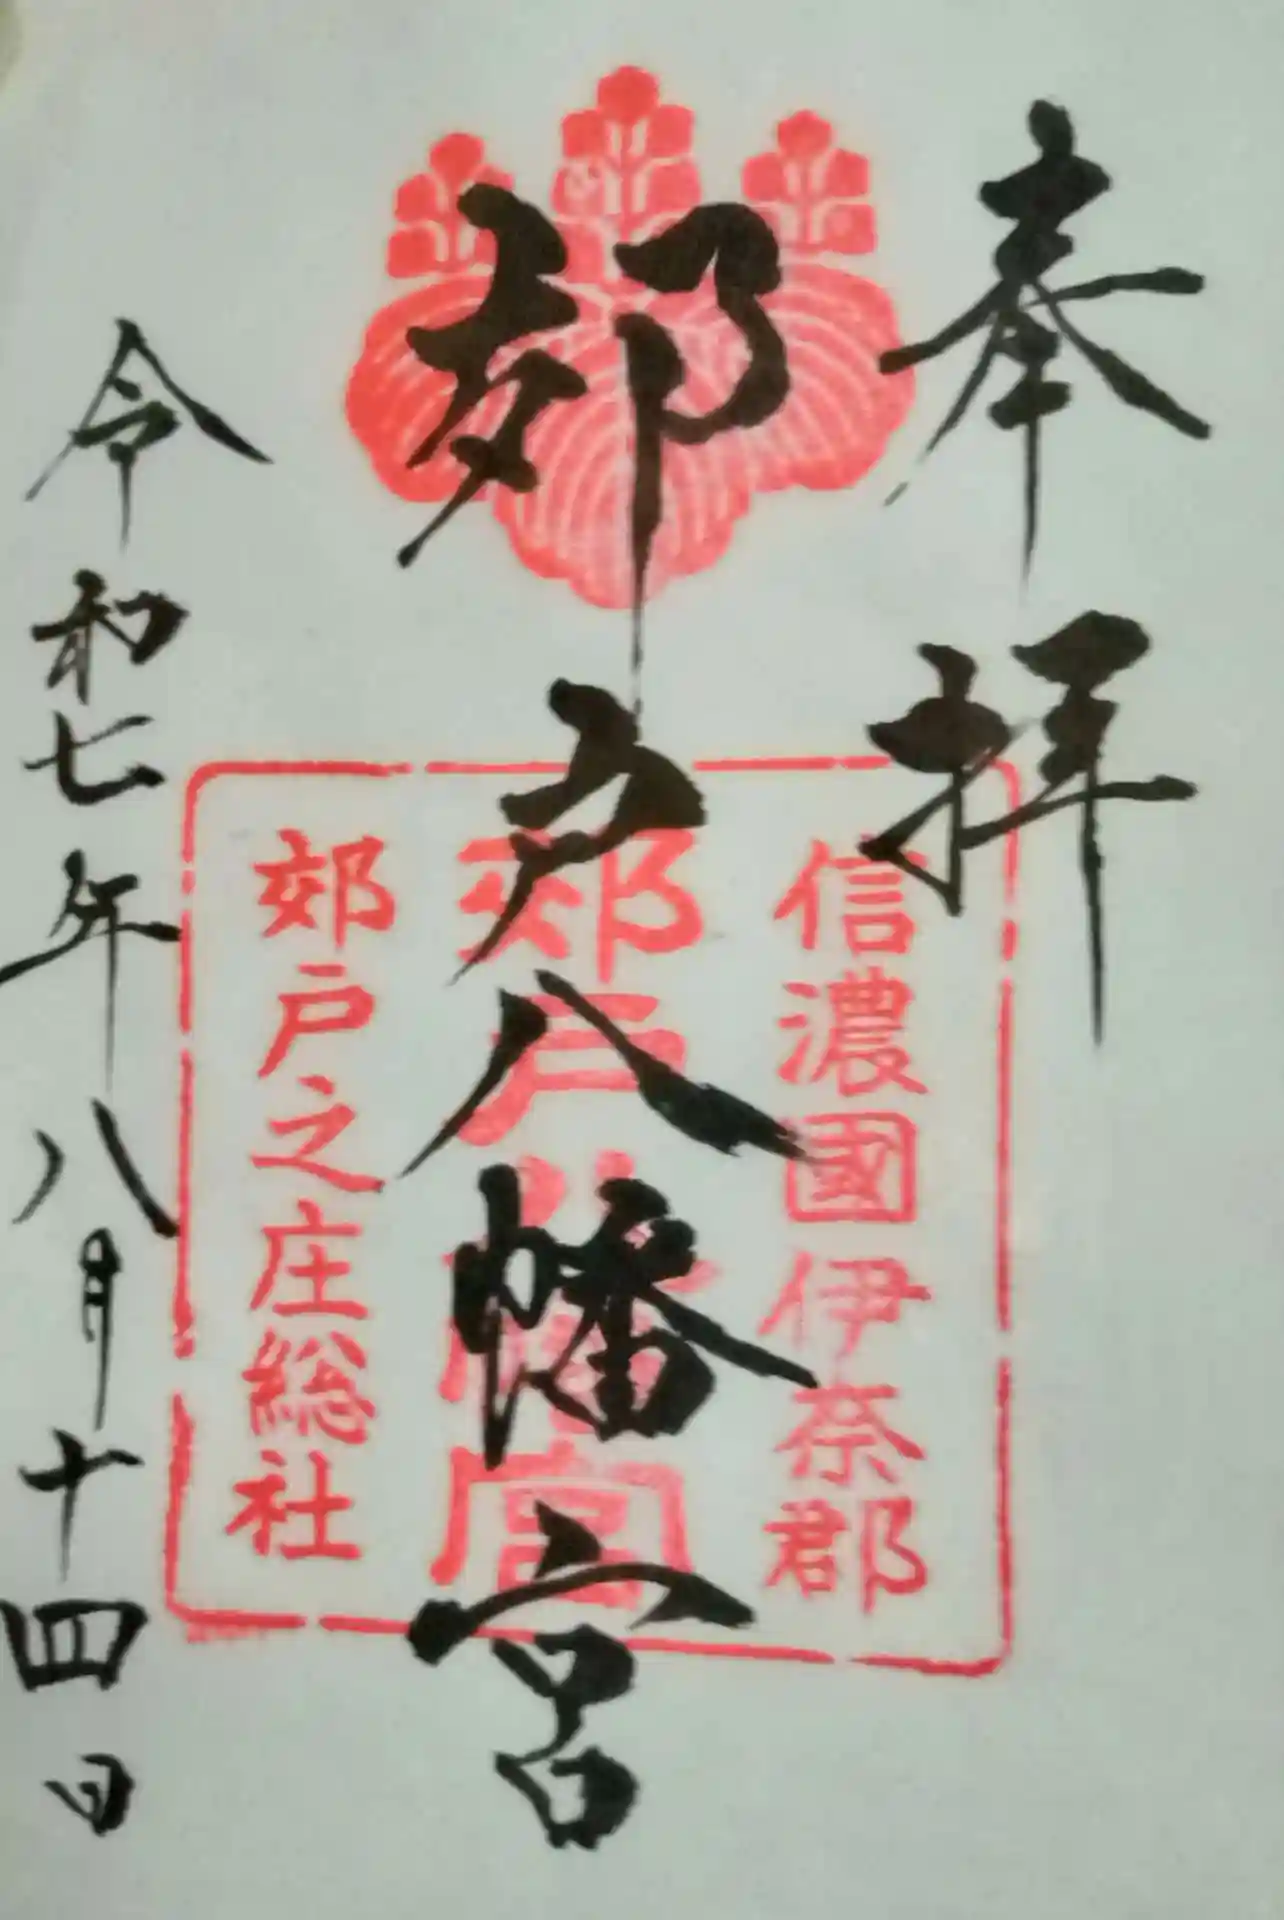 奉拝
郊戸八幡宮
令和七年八月十四日
信濃國伊奈郡
郊戸八幡宮
郊戸之庄総社